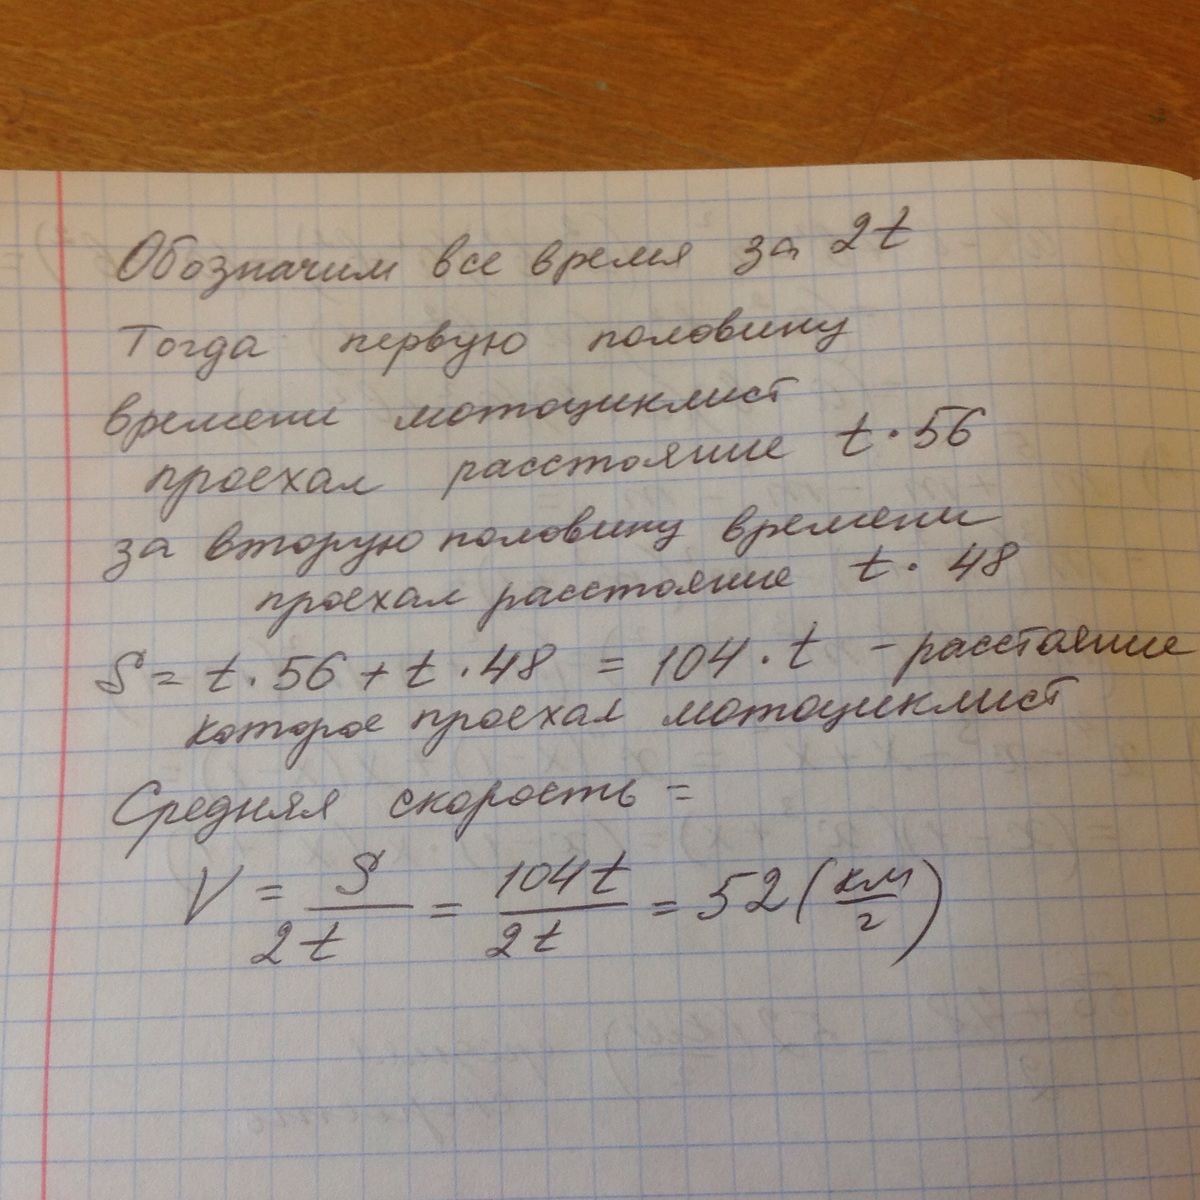 Обозначим все время за 2t
Тогда первую половину
времени мотоциклист
проехал расстояние t · 56
за вторую половину времени
проехал расстояние t · 48
S = t · 56 + t · 48 = 104 · t - расстояние
которое проехал мотоциклист
Средняя скорость =
V = S/2t = 104t/2t = 52 (км/ч)